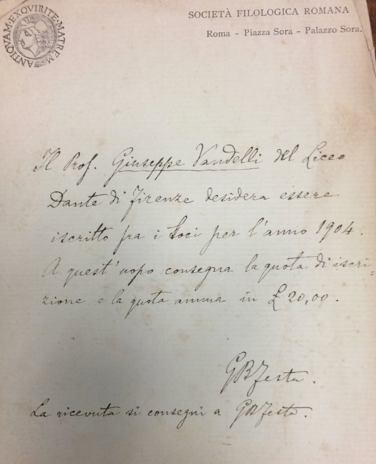 ANTIQVAM·EXQVIRITE·MATREM
SOCIETÀ FILOLOGICA ROMANA
Roma - Piazza Sora - Palazzo Sora.
Il Prof. Giuseppe Vandelli del Liceo
Dante di Firenze desidera essere
iscritto fra i Soci per l'anno 1904.
A quest'uopo consegna la quota di iscri-
zione e la quota annua in £ 20,00.
GBFesta.
La ricevuta si consegni a GBFesta.